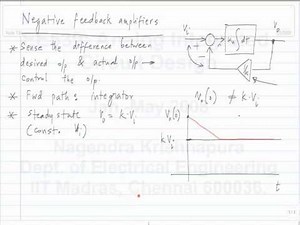 Negative feedback amplifiers
* Sense the difference between
desired o/p & actual o/p →
control the o/p.
* Fwd path: integrator
* Steady state V₀ = k·Vᵢ
(const. Vᵢ)
Vᵢ
∫dt
V₀
V₀(0) ≠ k·Vᵢ
V₀(0)
k·Vᵢ
t
Nagendra Krishnapura
Dept. of Electrical Engineering
IIT Madras, Chennai 600036,